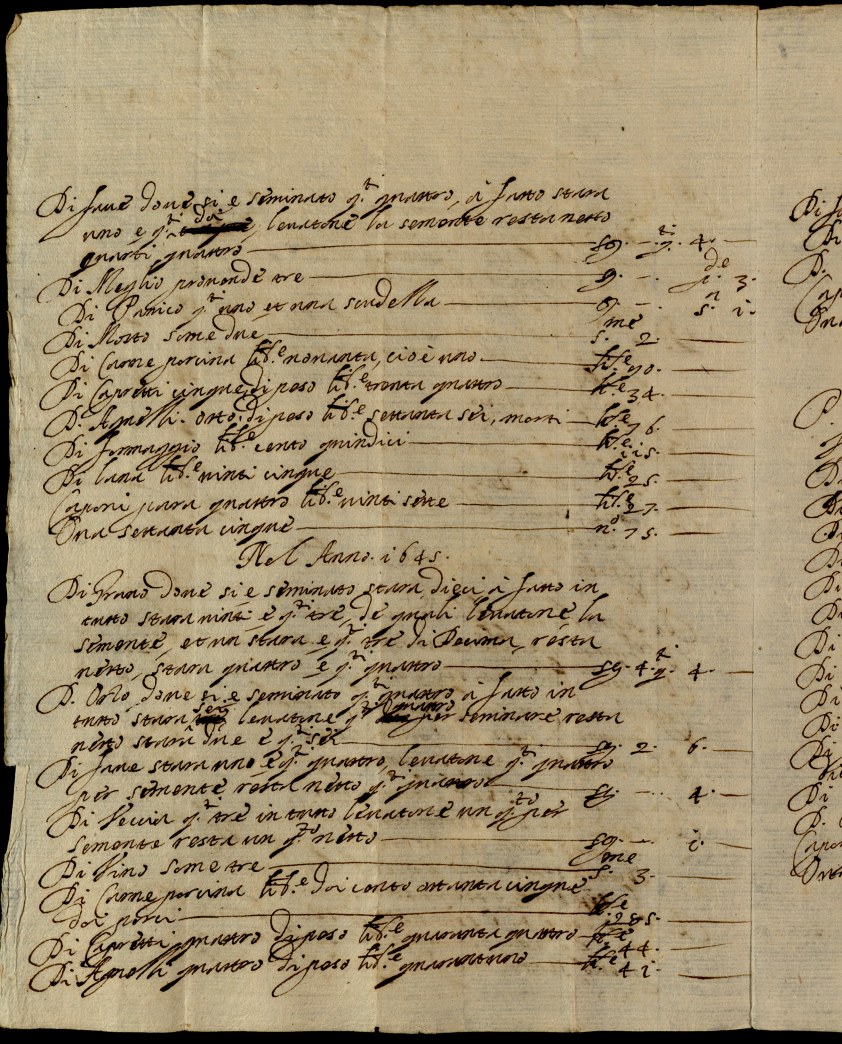 Di faue doue si e seminato q.ti quattro, à fatto stara
uno e q.ti doi, leuatone la semente resta netto
quarti quattro sg. - q.ti 4.
Di Meglio prouende tre g. - p.de 3.
Di Panico q.to uno et una scudella g. - s.a i.
Di Mosto some due s.me 2.
Di Carne porcina lib.e nonanta, cioè uno lib.e 90.
Di Capretti cinque, di peso lib.e trenta quattro lib.e 34.
D. Agnelli otto, di peso lib.e settanta sei, morti lib.e 76.
Di formaggio lib.e cento quindici lib.e ii5.
Di lana lib.e uinti cinque lib.e 25.
Caponi para quattro lib.e uinti sette lib.e 27.
Oua settanta cinque n.o 75.
Nel Anno. i645.
Di Grano doue si e seminato stara dieci à fatto in
tutto stara uinti e q.ti tre, de quali leuatone la
semente, et un stara e q.ti tre di Decima, resta
netto, stara quattro e q.ti quattro sg. 4. q.ti 4.
D. Orzo doue si e seminato q.ti quattro à fatto in
tutto stara sei leuatone q.ti quattro per seminare resta
netto stara due e q.ti sei sg. 2. 6.
Di faue stara uno e q.ti quattro, leuatone q.ti quattro
per semente resta netto q.ti quattro sg. - 4.
Di Veccia q.ti tre in tutto leuatone un q.to per
semente resta un q.to netto sg. - i.
Di Vino some tre s.me 3.
Di Carne porcina lib.e doi cento ottanta cinque
doi porci lib.e 285.
Di Capretti quattro di peso lib.e quaranta quattro lib.e 44.
Di Agnelli quattro di peso lib.e quarantuno lib.e 4i.